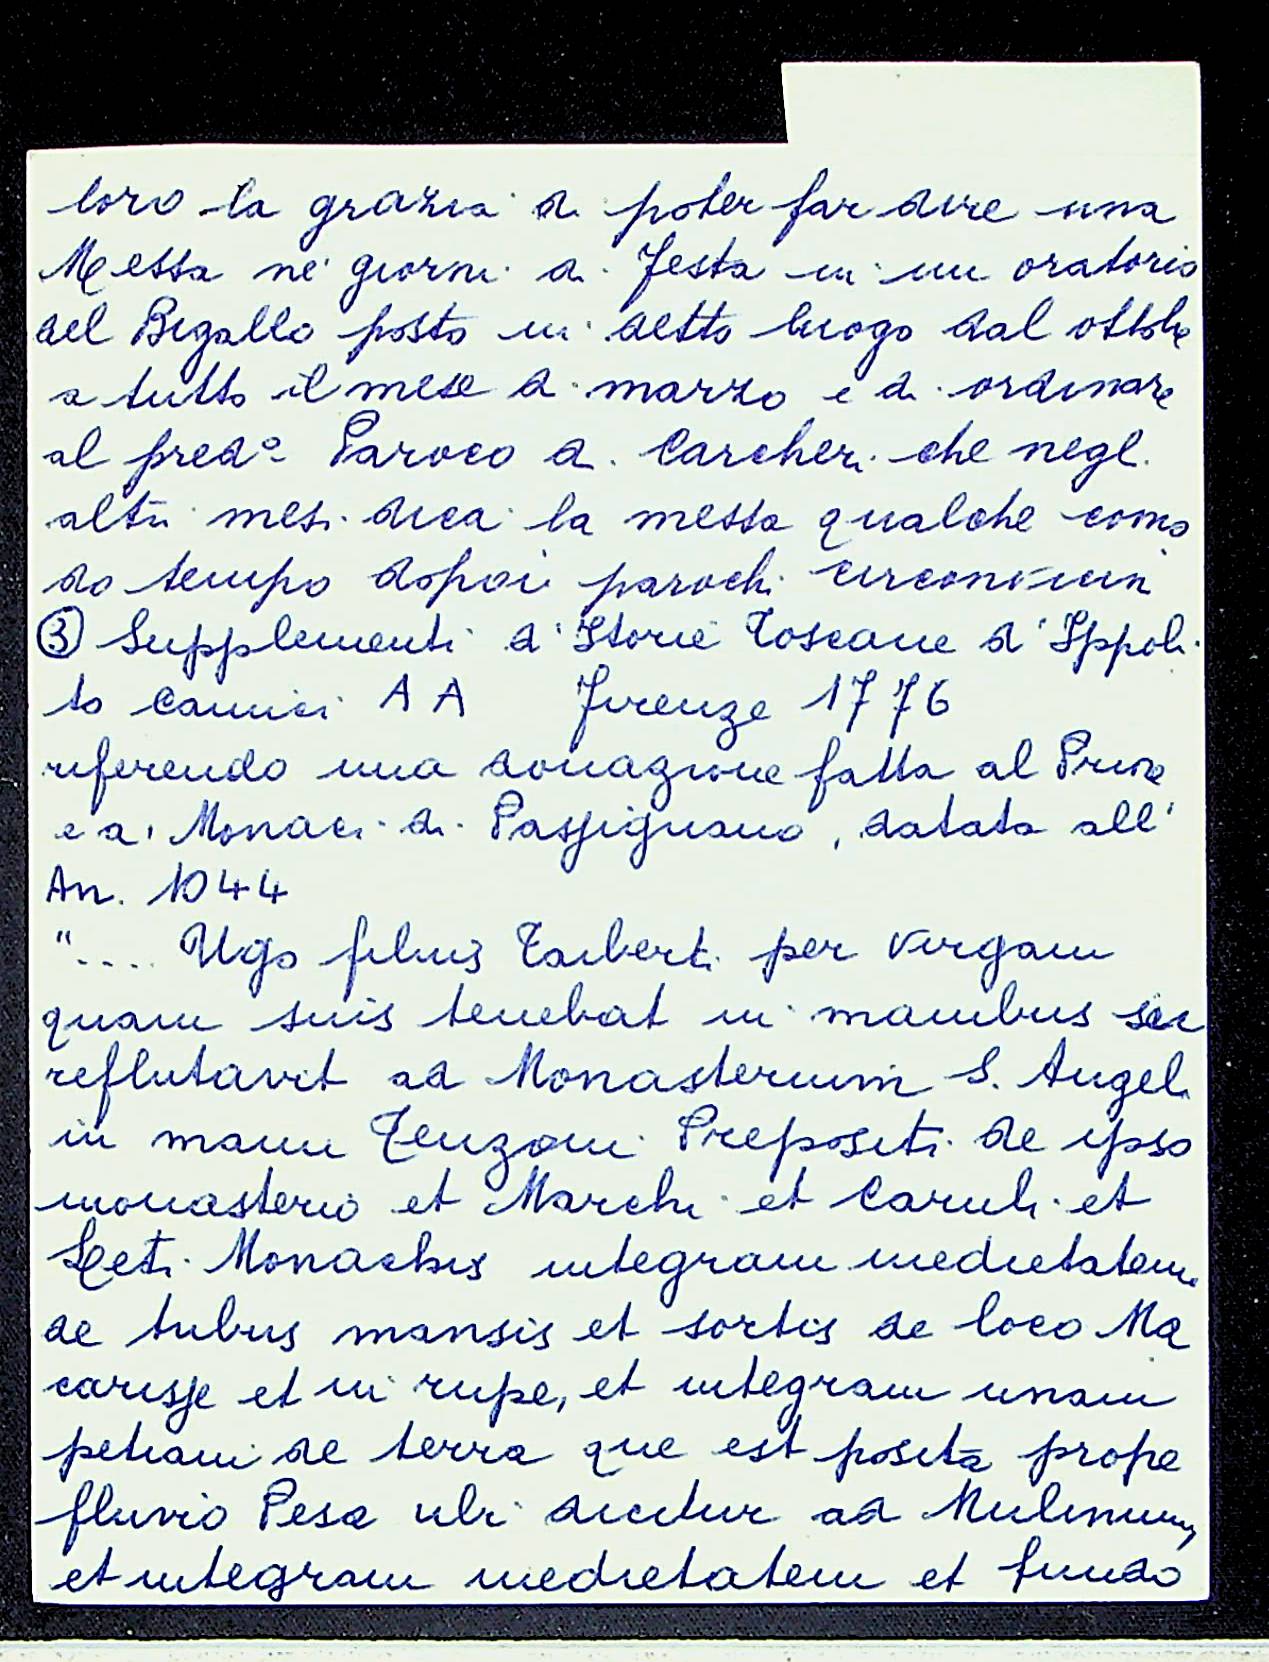 loro la grazia di poter far dire una
Messa ne' giorni di Festa in un oratorio
del Bigallo posto in detto luogo dal ottobe
a tutto il mese di marzo e di ordinare
al pred.º Paroco di Carcheri che negli
altri mesi dica la messa qualche como
do tempo dopo i parochi circonvicini
③ Supplementi d'Istorie Toscane d'Ippoli
to Camici AA Firenze 1776
riferendo una donazione fatta al Priore
e ai Monaci di Passignano, datata all'
An. 1044
".... Ugo filius Taiberti per virgam
quam suis tenebat in manibus sic
reflutavit ad Monasterium S. Angeli
in manu Tenzoni Prepositi de ipso
monasterio et Marchi et Caruli et
Leti Monachis integram medietatem
de tribus mansis et sortis de loco Ma
carisse et in rupe, et integram unam
petiam de terra que est posita prope
fluvio Pesa ubi dicitur ad Mulinum,
et integram medietatem et fundo